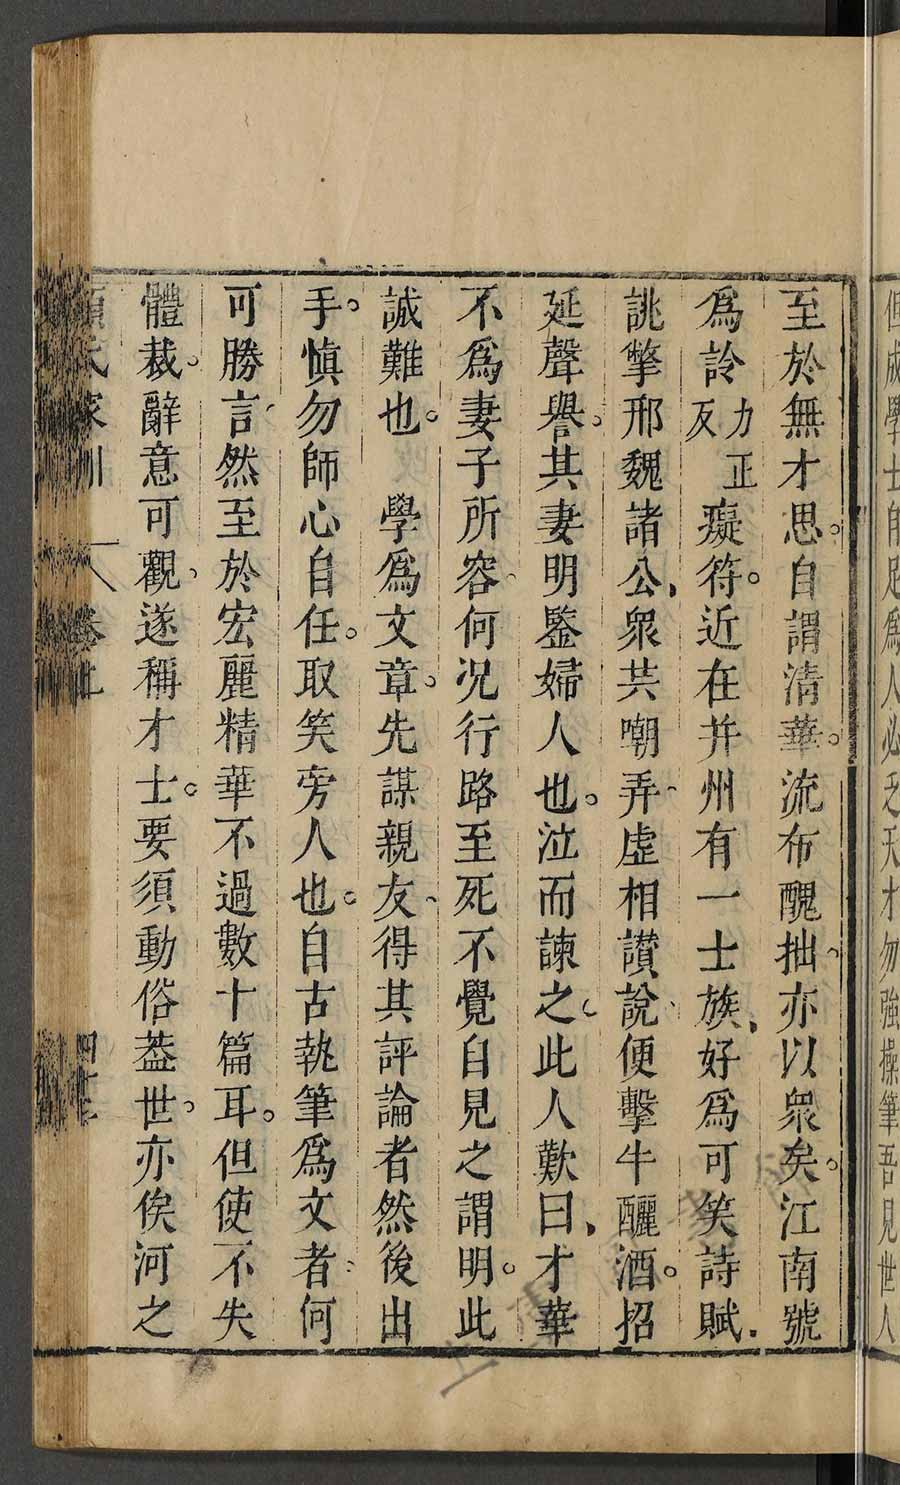 但成學士自足爲人必乏天才勿強操筆吾見世人
至於無才思。自謂清華。流布醜拙、亦以衆矣。江南號
爲詅力正反癡符。近在并州有一士族、好爲可笑詩賦、
誂撆邢魏諸公、衆共嘲弄、虛相讚說、便擊牛釃酒。招
延聲譽。其妻明鑒婦人也。泣而諫之。此人歎曰、才華
不爲妻子所容、何况行路至死不覺自見之謂明。此
誠難也。　學爲文章。先謀親友、得其評論者然後出
手。慎勿師心自任。取笑旁人也。自古執筆爲文者、何
可勝言、然至於宏麗精華不過數十篇耳。但使不失
體裁。辭意可觀、遂稱才士。要須動俗葢世、亦俟河之
顏氏家訓　卷上　四十三